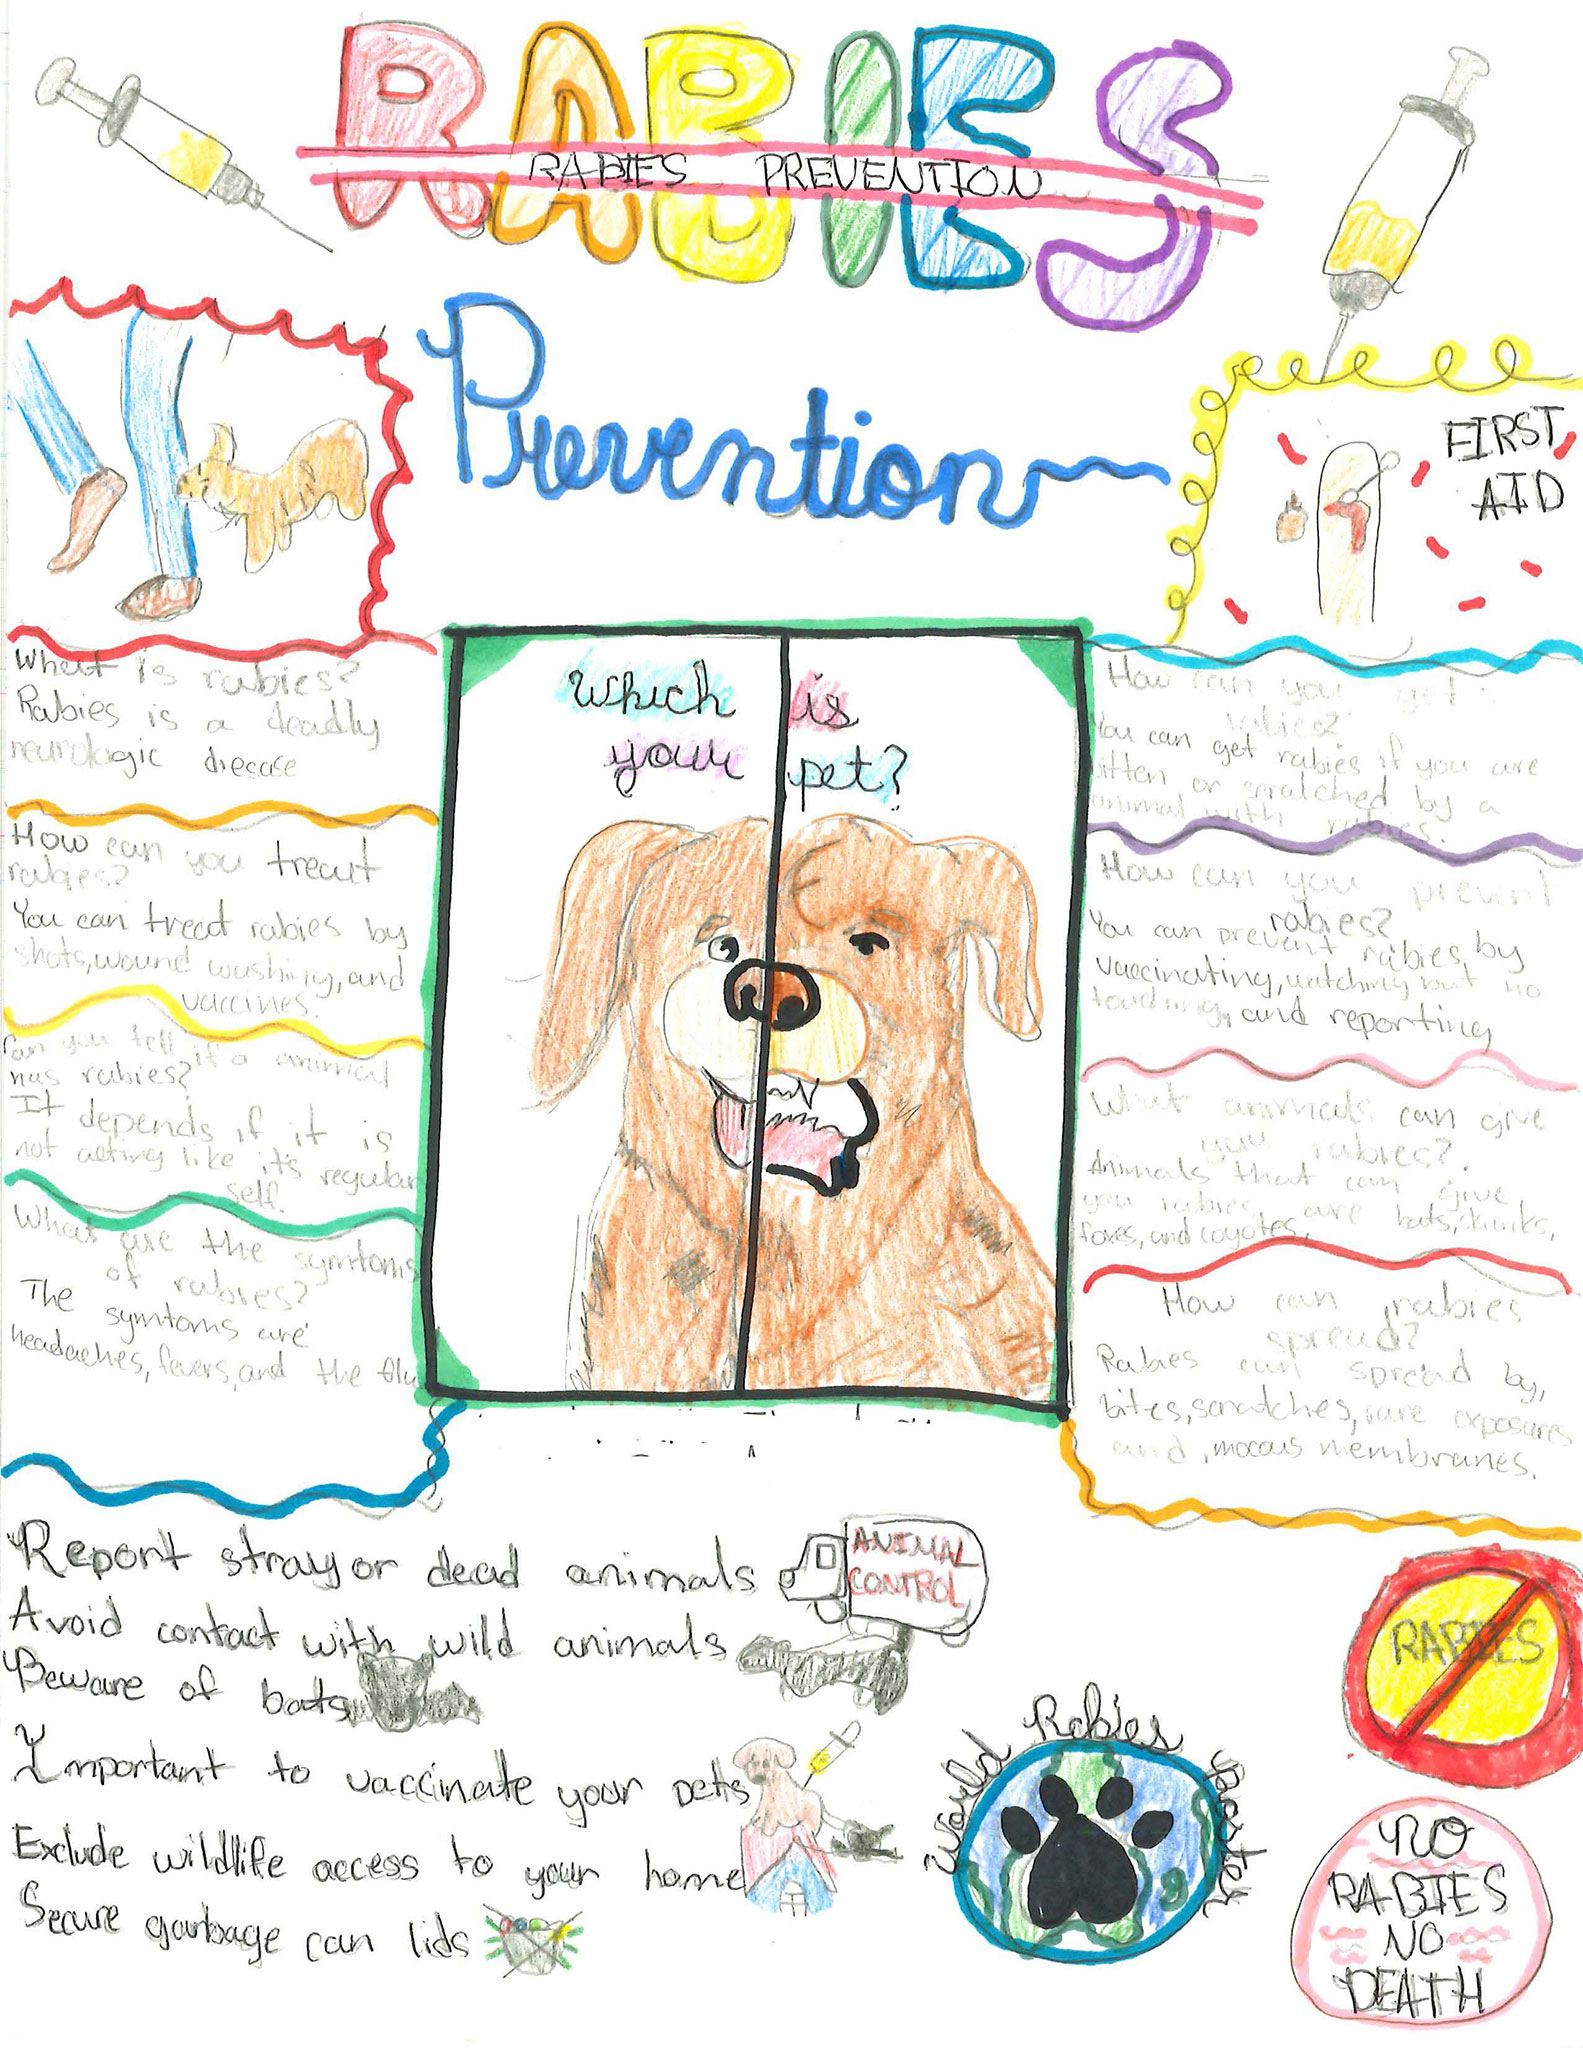 RABIES
RABIES PREVENTION
Prevention
FIRST
AID
What is rabies?
Rabies is a deadly
neurologic diecase
How can you treat
rabies?
You can treat rabies by
shots, wound washing, and
vaccines.
Can you tell if a animal
has rabies?
It depends if it is
not acting like it's regular
self.
What are the symtoms
of rabies?
The symtoms are
headaches, fevers, and the flu
Which is
your pet?
How can you get
rabies?
You can get rabies if you are
bitten or scratched by a
animal with rabies.
How can you prevent
rabies?
You can prevent rabies by
vaccinating, watching but no
touching, and reporting
What animals can give
you rabies?
Animals that can give
you rabies are bats, skunks,
foxes, and coyotes.
How can rabies
spread?
Rabies can spread by,
bites, scratches, rare exposures
and, mocous membranes.
Report stray or dead animals
ANIMAL
CONTROL
Avoid contact with wild animals
Beware of bats
Important to vaccinate your pets
Exclude wildlife access to your home
Secure garbage can lids
World Rabies
RABIES
NO
RABIES
NO
DEATH